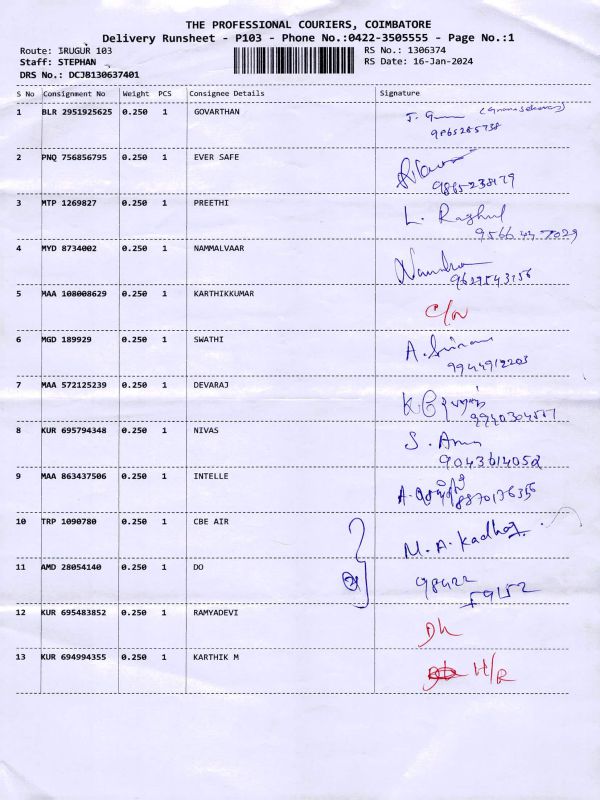 THE PROFESSIONAL COURIERS, COIMBATORE
Delivery Runsheet - P103 - Phone No.:0422-3505555 - Page No.:1
Route: IRUGUR 103 RS No.: 1306374
Staff: STEPHAN RS Date: 16-Jan-2024
DRS No.: DCJB130637401
S No Consignment No Weight PCS Consignee Details Signature
1 BLR 2951925625 0.250 1 GOVARTHAN
2 PNQ 756856795 0.250 1 EVER SAFE
3 MTP 1269827 0.250 1 PREETHI L. Raghul
9566447029
4 MYD 8734002 0.250 1 NAMMALVAAR
9629543156
5 MAA 108008629 0.250 1 KARTHIKKUMAR
6 MGD 189929 0.250 1 SWATHI
9944912203
7 MAA 572125239 0.250 1 DEVARAJ
8 KUR 695794348 0.250 1 NIVAS S. Arun
9043614052
9 MAA 863437506 0.250 1 INTELLE
8870176356
10 TRP 1090780 0.250 1 CBE AIR M. A. Kadhar
11 AMD 28054140 0.250 1 DO 98422
59152
12 KUR 695483852 0.250 1 RAMYADEVI
13 KUR 694994355 0.250 1 KARTHIK M H/R